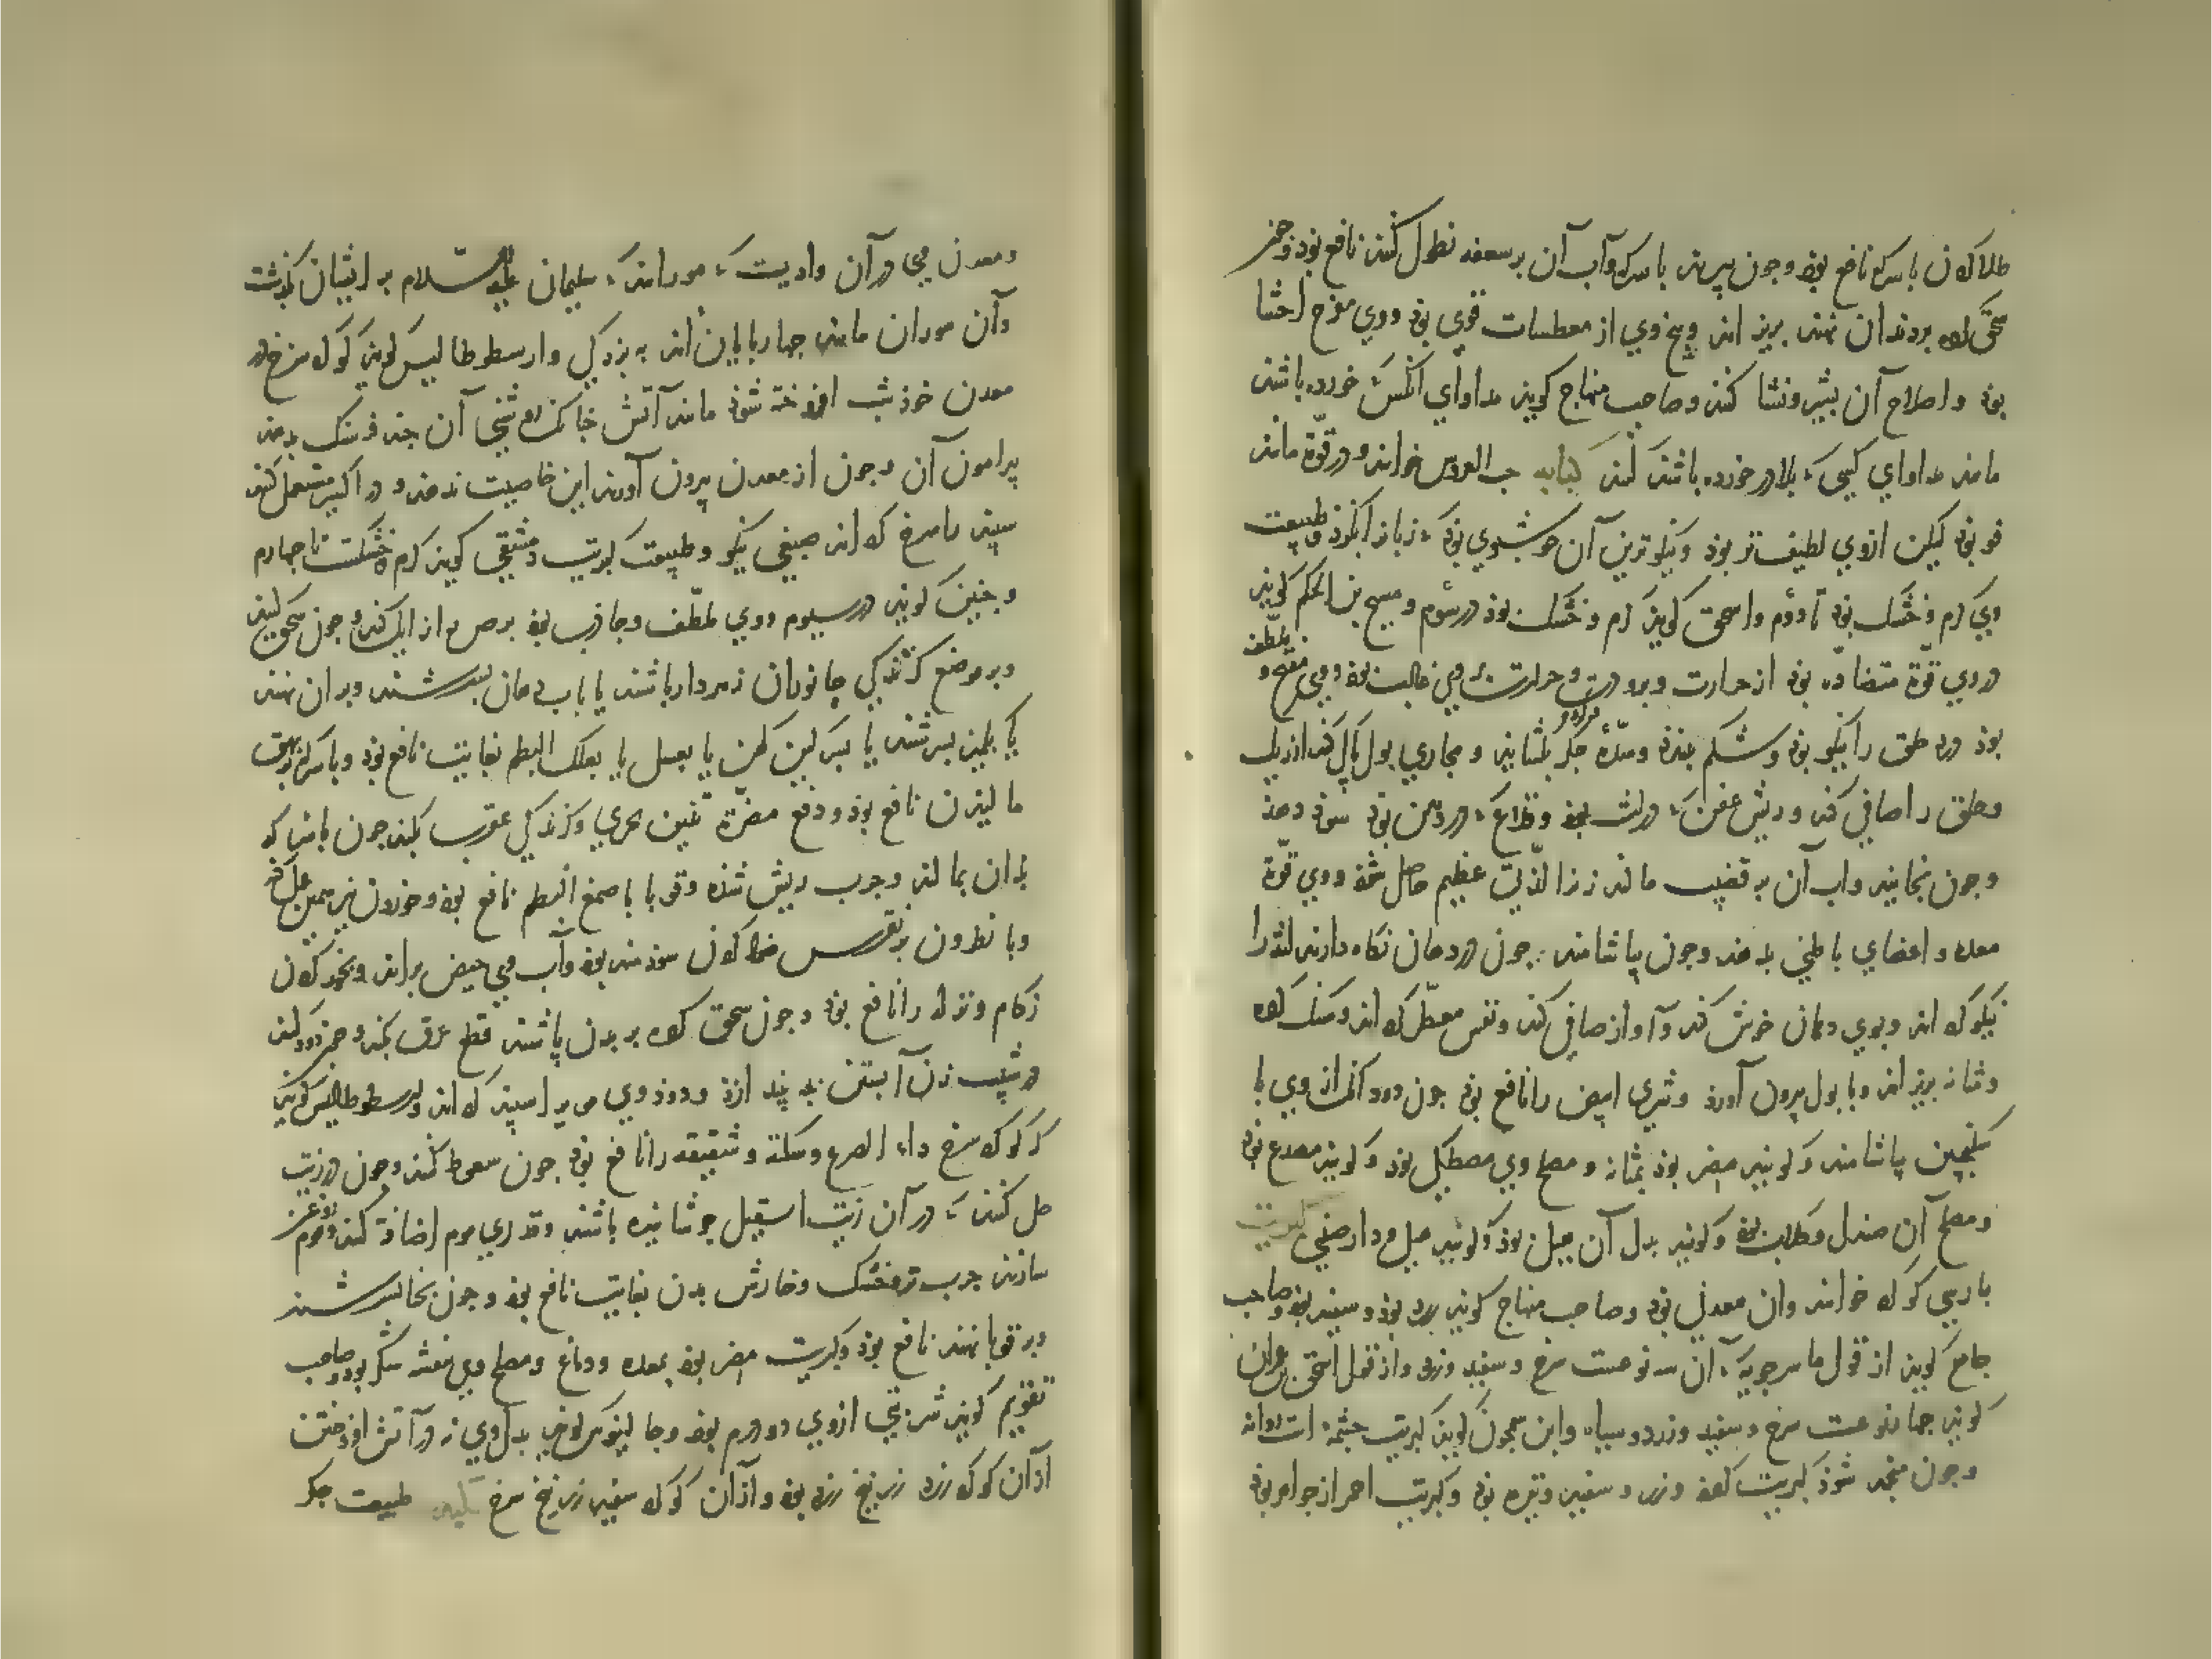 طلا کردن با سرکه نافع بود وجون بپزند با سرکه وآب آن بر سعفه نطول کنند نافع بود وجون
سحق کرده بر دندان نهند بریزاند وبیخ وی از معطسات قوی بود ووی مقرح احشا
بود واصلاح آن بشیر ونشا کنند وصاحب منهاج کوید مداوای انکس که خورده باشد
مانند مداوای کسی که بلادر خورده باشد کنند کبابه حب العروس خوانند ودر قوّة مانند
فو بود لیکن ازوی لطیف تر بود ونیکوترین آن خوشبوی بود که زبانرا بکزد وطبیعت
وی کرم وخشک بود تا دوّم واسحق کوید کرم وخشک بود در سوم ومسیح بن الحکم کوید
در وی قوّة متضاده بود از حرارت وبرودت وحرارت بر وی غالب بود ووی مفتح وملطف
بود ودرد حلق را نیکو بود وشکم ببندد وسدّه جکر بکشاید ومجاری بول پاک کند از ریک
وحلق را صافی کند وریش عفن که در لثه بود وقلاع که در دهن بود سود دهد
وجون بخایند وآب آن بر قضیب مالند زنرا لذّتی عظیم حاصل شود ووی قوّة
معده واعضای باطنی بدهد وجون بیاشامند وجون در دهان نکاه دارند لثه را
نیکو کرداند وبوی دهان خوش کند وآواز صافی کند ونفس معطّر کرداند وسنک کرده
ومثانه بریزاند وبا بول بیرون آورد وشری ابیض را نافع بود جون دو دانک از وی با
سکنجبین بیاشامند وکویند مضر بود بمثانه ومصلح وی مصطکی بود وکویند مصدع بود
ومصلح آن صندل وکلاب بود وکویند بدل آن هیل بود وکویند هیل ودارصینی کبریت
بپارسی کوکرد خوانند وان معدنی بود وصاحب منهاج کوید زرد بود وسفید بود وصاحب
جامع کوید از قول ماسرجویه که آن سه نوعست سرخ وسفید وزرد واز قول اسحق بن عمران
کوید جهار نوعست سرخ وسفید وزرد وسیاه وابن سمجون کوید کبریت جشمه ایست روانه
وجون منجمد شود کبریت کردد وزرد وسفید وتیره بود وکبریت احمر از جواهر بود
ومعدن وی در آن وادیست که مورانند که سلیمان علیه السّلام بر ایشان بکذشت
وآن موران مانند جهاربایان اند به بزرکی وارسطوطالیس کوید کوکرد سرخ در
معدن خود شب افروخته شود مانند آتش جنانکه روشنی آن جند فرسنک بدهد
پیرامون آن وجون از معدن بیرون آورند این خاصیت ندهد ودر اکسیر مستعمل کنند
سپید را سرخ کرداند صبغی نیکو وطبیعت کبریت دمشقی کوید کرم وخشکست تا جهارم
وجنین کویند در سیوم ووی ملطّف وجاذب بود برص را زایل کند وجون سحق کنند
وبر موضع کزندکی جانوران زهردار باشند یا بآب دهان بسرشند وبران نهند
یا بکمیز بسرشند یا بسرکین کهن یا بعسل یا بعلک البطم بغایت نافع بود وبا سرکه بر بهق
مالیدن نافع بود ودفع مضرّة تنین بحری وکزندکی عقرب بکند جون با سرکه
بدان بمالند وجرب ریش شده وقوبا با صمغ البطم نافع بود وخوردن نیز همین عمل کند
وبا نطرون بر نقرس ضماد کردن سودمند بود وآب وی حیض براند وبخور کردن
زکام ونزله را نافع بود وجون سحق کرده بر بدن پاشند قطع عرق بکند وجون دود کنند
در شیب زن آبستن بجه بیندازد ودود وی موی را سپید کرداند وارسطوطالیس کوید
که کوکرد سرخ داء الصرع وسکته وشقیقه را نافع بود جون سعوط کنند وجون در زیت
حل کنند که در آن زیت اسقیل جوشانیده باشند وقدری موم اضافه کنند ومرهم
سازند جرب تر وخشک وخارش بدن بغایت نافع بود وجون بحنا بسرشند
وبر قوبا نهند نافع بود وکبریت مضر بود بمعده ودماغ ومصلح وی بنفشه وشکر بود وصاحب
تقویم کوید شربتی ازوی دو درم بود وجالینوس کوید بدل وی نه در آتش افروختن
ازآن کوکرد زرد زرنیخ زرد بود وازآن کوکرد سفید زرنیخ سرخ کبد طبیعت جکر